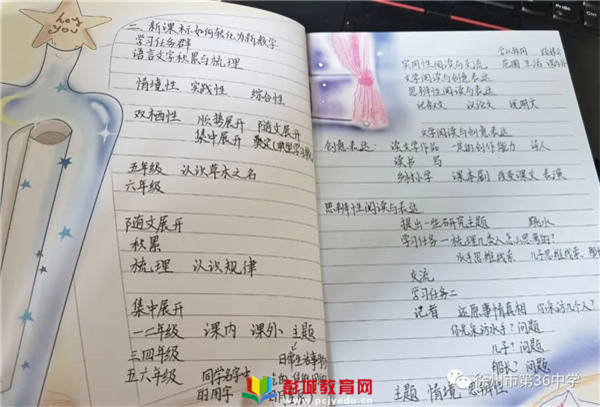 hey you
二、新课标如何转化为新教学
学习任务群
语言文字积累与梳理
情境性 实践性 综合性
双栖性 随文展开
集中展开
五年级 认识草木之名
六年级
随文展开
积累
梳理 认识规律
集中展开
一二年级 课内 课外 主题
三四年级 日常生活事物
五六年级 同学名字中
的用字
实用性阅读与交流 范围 生活
文学阅读与创意表达
思辨性阅读与表达
记叙文 议论文 说明文
文学阅读与创意表达
创意表达: 读文学作品 一定的创作能力 诗人
读书 写
乡村小学 课本剧 改变课文 表演
思辨性阅读与表达
提出一些研究主题 跳水
学习任务一 梳理几个人怎么思考的?
水手思维线索 儿子思维线索
交流
学习任务二
记者 还原事情真相 你采访几个人?
你先采访水手? 问题
儿子? 问题
船长? 问题
主题 情境 思辨性
彭城教育网
www.pcjyedu.cn
徐州市第36中学